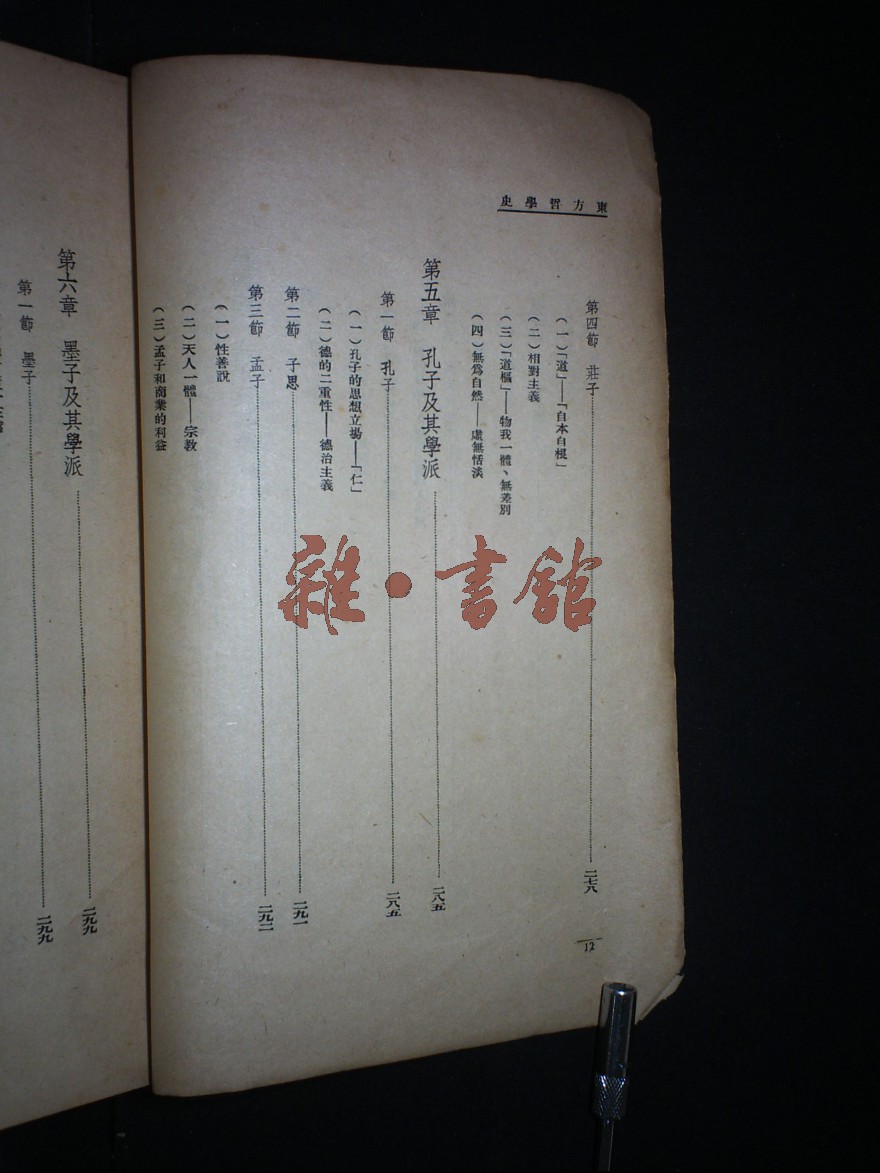 東方哲學史
第四節 莊子 二七八
(一)「道」——「自本自根」
(二)相對主義
(三)「道樞」——物我一體、無差別
(四)無爲自然——虛無恬淡
第五章 孔子及其學派 二八五
第一節 孔子 二八五
(一)孔子的思想立場——「仁」
(二)德的二重性——德治主義
第二節 子思 二九一
第三節 孟子 二九二
(一)性善說
(二)天人一體——宗教
(三)孟子和商業的利益
12
第六章 墨子及其學派 二九九
第一節 墨子 二九九
雜·書館